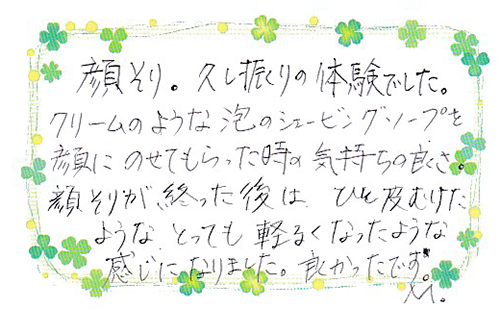 顔そり。久し振りの体験でした。
クリームのような泡のシェービングソープを
顔にのせてもらった時の気持ちの良さ。
顔そりが、終った後は、ひと皮むけた
ような、とっても軽るくなったような
感じになりました。良かったです。
M.